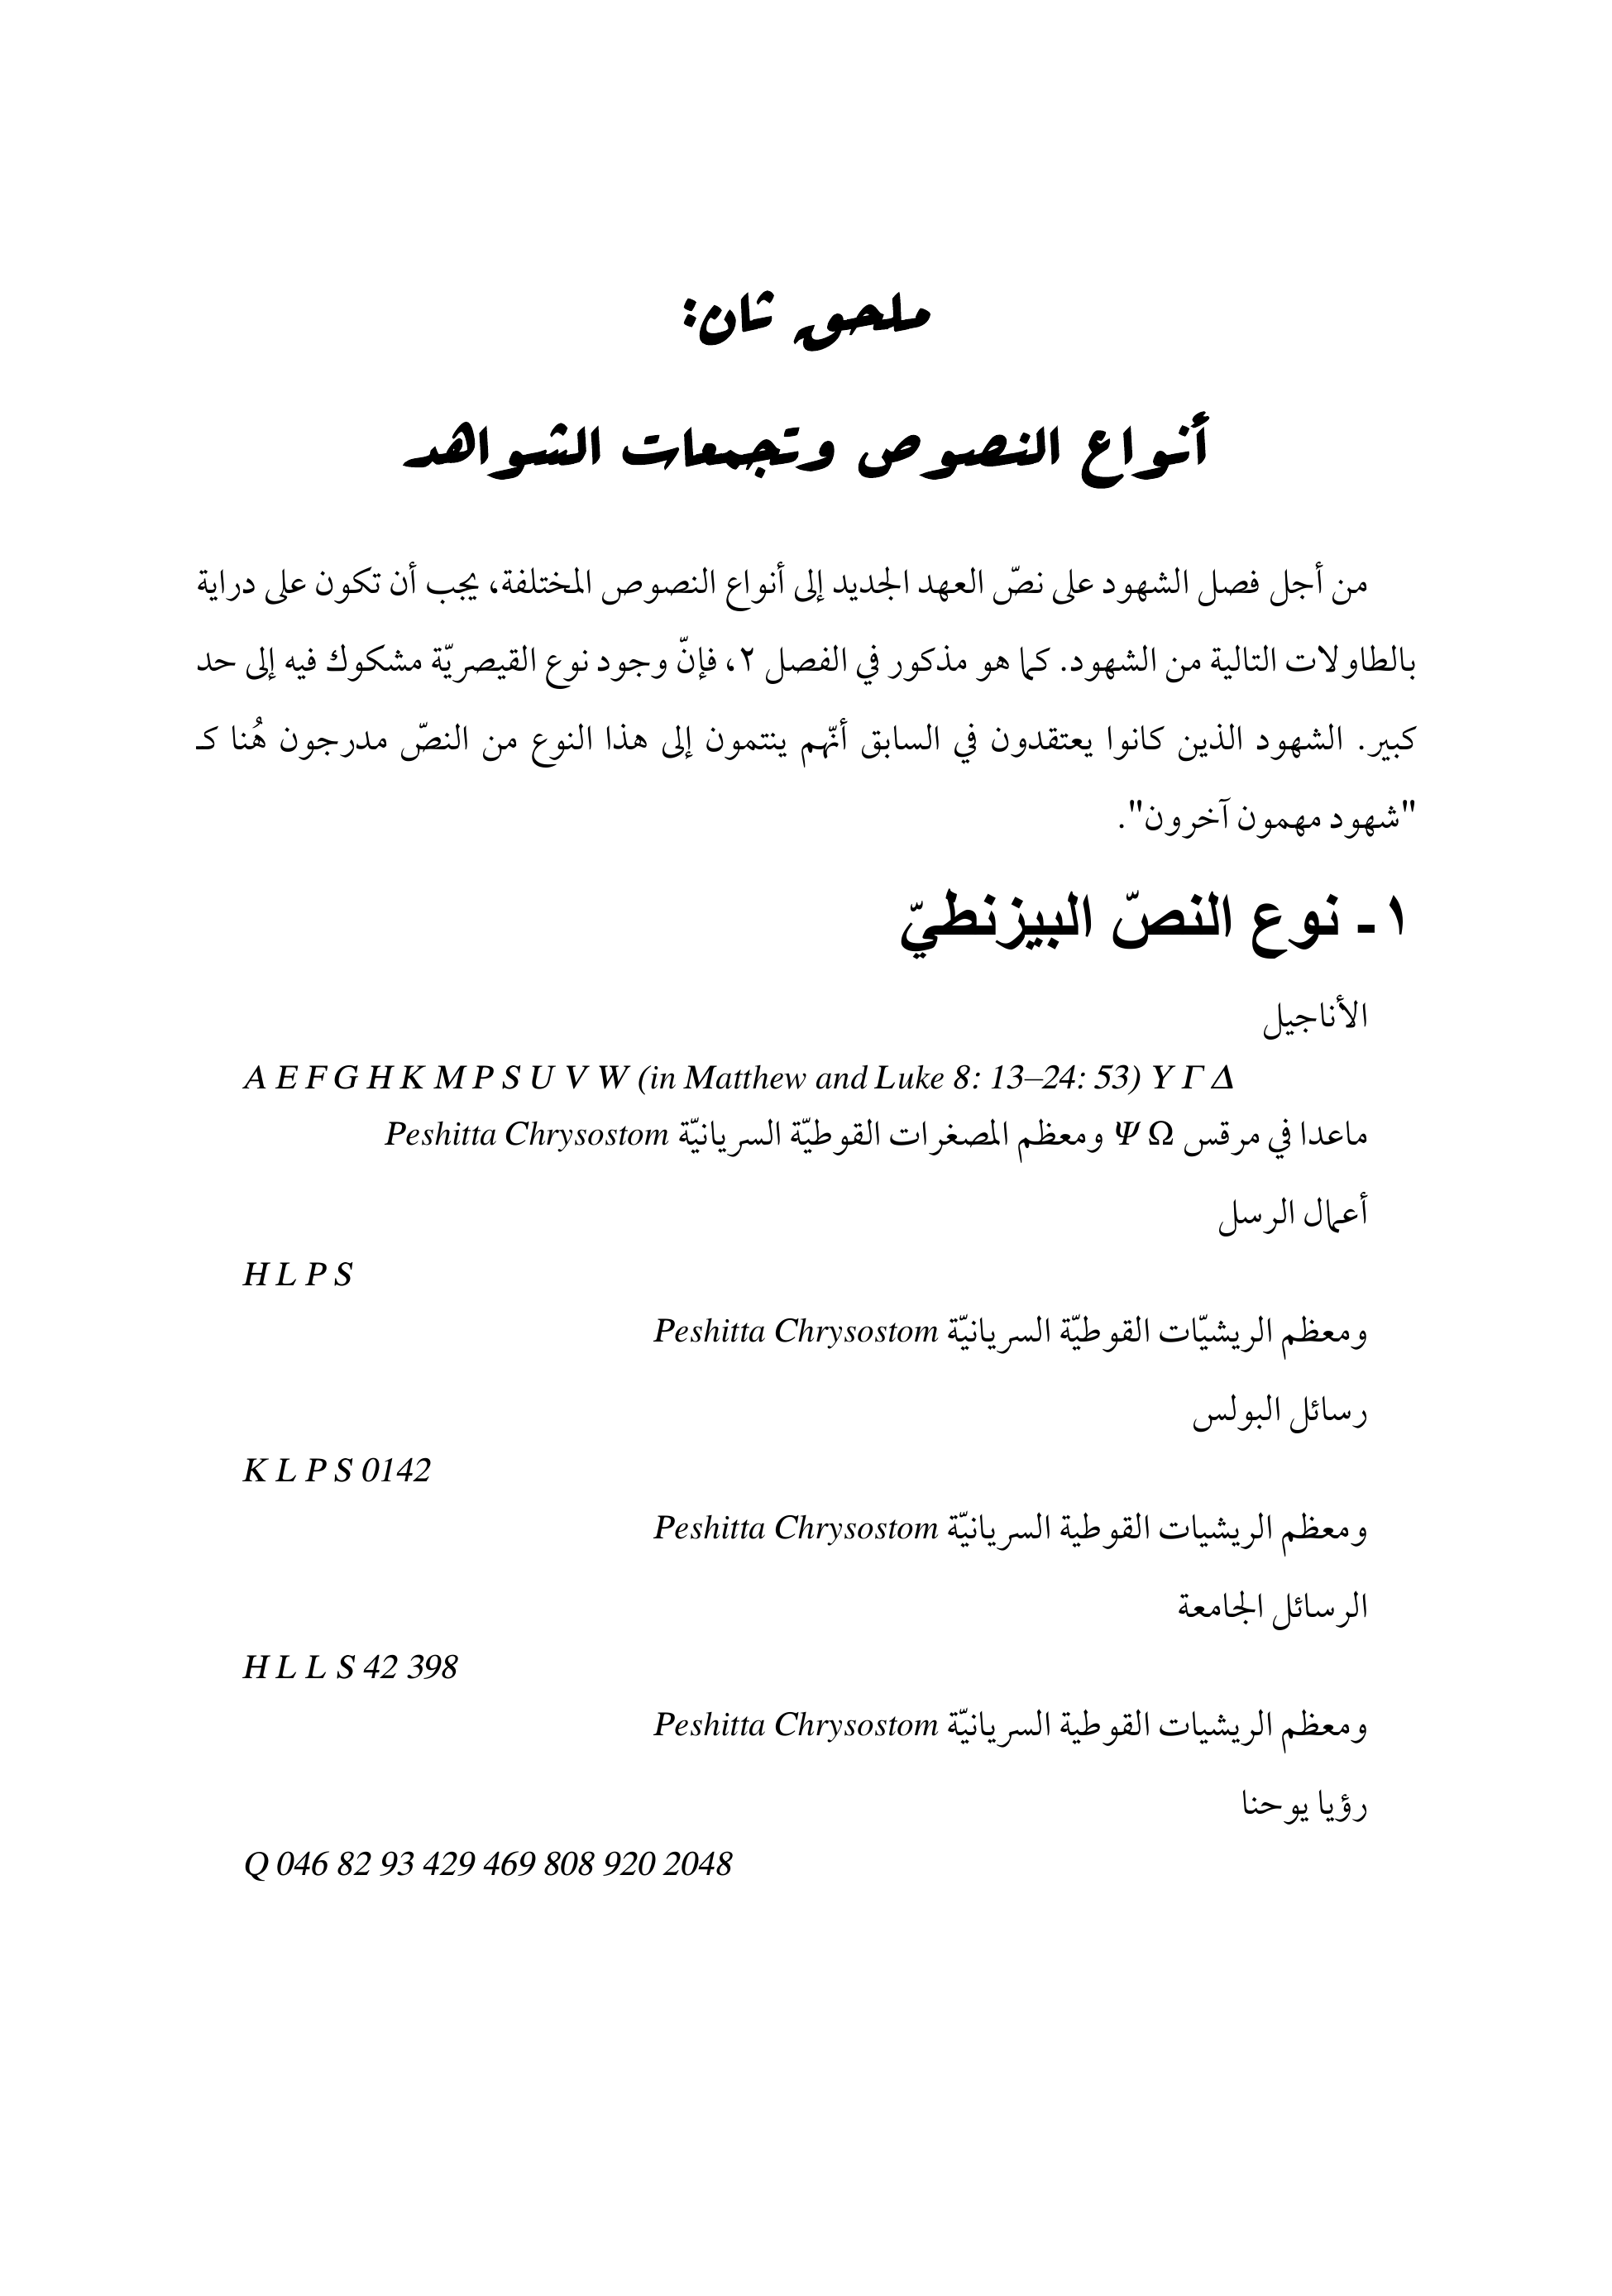 ملحق ثان:
أنواع النصوص وتجمعات الشواهد
من أجل فصل الشهود على نصّ العهد الجديد إلى أنواع النصوص المختلفة، يجب أن تكون على دراية
بالطاولات التالية من الشهود. كما هو مذكور في الفصل ٢، فإنّ وجود نوع القيصريّة مشكوك فيه إلى حد
كبير. الشهود الذين كانوا يعتقدون في السابق أنّهم ينتمون إلى هذا النوع من النصّ مدرجون هُنا كـ
"شهود مهمون آخرون".
١- نوع النصّ البيزنطيّ
الأناجيل
A E F G H K M P S U V W (in Matthew and Luke 8: 13–24: 53) Y Γ Δ
ماعدا في مرقس Ψ Ω ومعظم المصغرات القوطيّة السريانيّة Peshitta Chrysostom
أعمال الرسل
H L P S
ومعظم الريشيّات القوطيّة السريانيّة Peshitta Chrysostom
رسائل البولس
K L P S 0142
ومعظم الريشيات القوطية السريانيّة Peshitta Chrysostom
الرسائل الجامعة
H L L S 42 398
ومعظم الريشيات القوطية السريانيّة Peshitta Chrysostom
رؤيا يوحنا
Q 046 82 93 429 469 808 920 2048